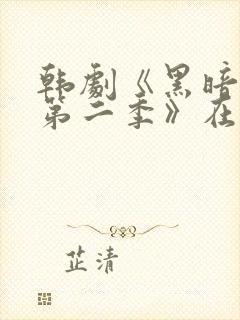 韩剧《黑暗
第二季》在
芷清